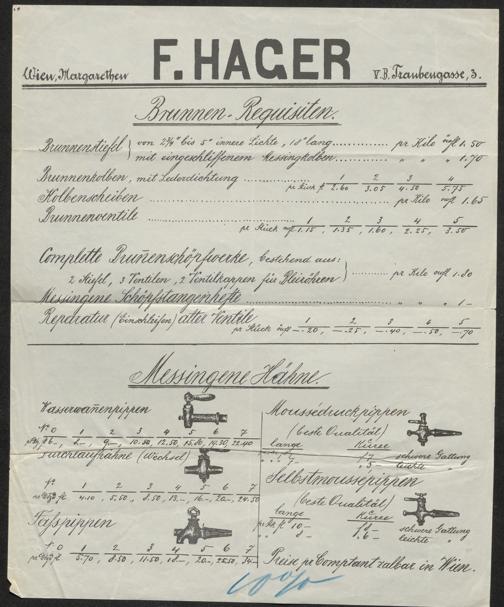 F. HAGER
Wien, Margarethen
V.B. Traubengasse, 3.
Brunnen-Requisiten.
Brunnenstiefl von 2¾" bis 5" innere Lichte, 18" lang pr Kilo öwfl 1.50
mit eingeschliffenem Messingkolben " " " 1.70
Brunnenkolben, mit Lederdichtung 1 2 3 4
pr Stück fl 2.60 3.05 4.50 5.75
Kolbenscheiben pr Kilo öwfl 1.65
Brunnenventile 1 2 3 4 5
pr Stück öwfl 1.15, 1.35, 1.60, 2.25, 3.50
Complette Brunnenschöpfwerke, bestehend aus:
2 Stiefl, 3 Ventilen, 2 Ventilkappen für Bleiröhren pr Kilo öwfl 1.80
Messingene Schöpfstangenhefte " " 1—
Reparatur (Einschleifen) alter Ventile 1 2 3 4 5
pr Stück öwfl —.20, —.25, —.40, —.50, —.70
Messingene Hähne.
Wasserwannenpippen
No 0 1 2 3 4 5 6 7
10.50 12.50 22.40
Durchlaufhähne (Wechsel)
1 2 3 4 5 6 7
4.10, 5.50, 8.50, 13.—, 16.—, 20.—, 24.50
Fasspippen
No 0 1 2 3 4 5 6 7
5.70, 8.50, 11.50
Moussédruckpippen
(beste Qualität)
lange Kürze
schwere Gattung
leichte "
Selbstmoussepippen
(beste Qualität)
lange Kürze
pr Stk fl 10— schwere Gattung
leichte "
Preise pr Comptant zalbar in Wien.
10%